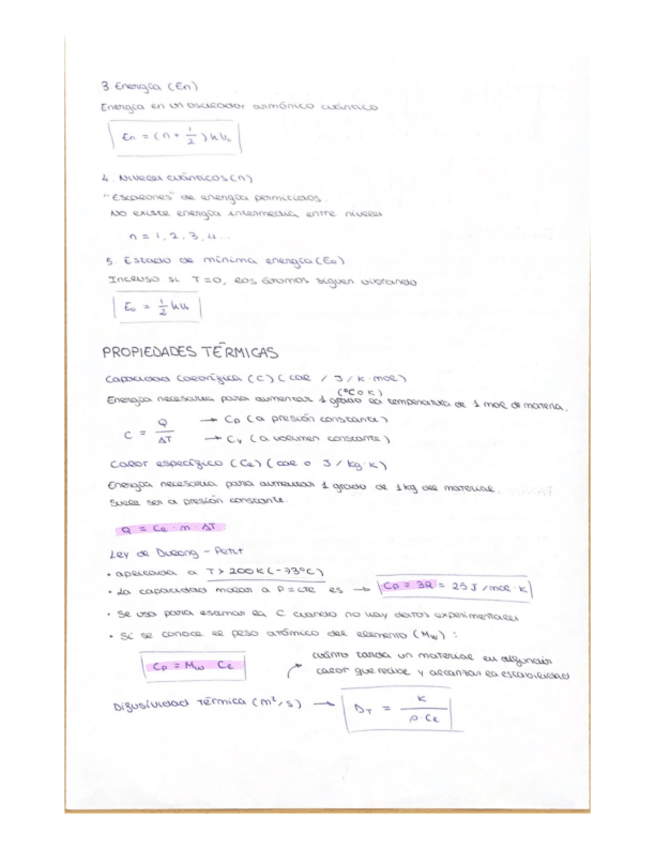 3 Energía (En)
Energía en un oscilador armónico cuántico
En = (n + 1/2) h ν₀
4. Niveles cuánticos (n)
"Escalones" de energía permitidos.
No existe energía intermedia entre niveles
n = 1, 2, 3, 4...
5. Estado de mínima energía (E₀)
Incluso si T = 0, los átomos siguen vibrando
E₀ = 1/2 h ν₀
PROPIEDADES TÉRMICAS
Capacidad calorífica (C) (cal / J / K·mol)
(°C o K)
Energía necesaria para aumentar 1 grado la temperatura de 1 mol de materia.
C = Q / ΔT → Cp (a presión constante)
→ Cv (a volumen constante)
Calor específico (Ce) (cal o J / kg·K)
Energía necesaria para aumentar 1 grado de 1 kg del material.
Suele ser a presión constante.
Q = Ce · m ΔT
Ley de Dulong - Petit
• aplicada a T > 200 K (-73°C)
• La capacidad molar a P = cte es → Cp = 3R = 25 J / mol · K
• Se usa para estimar la C cuando no hay datos experimentales
• Si se conoce el peso atómico del elemento (Mw) :
Cp = Mw Ce
cuánto tarda un material en
calor que recibe y alcanzar la estabilidad
Difusividad térmica (m²/s) → D_T = K / ρ · Ce